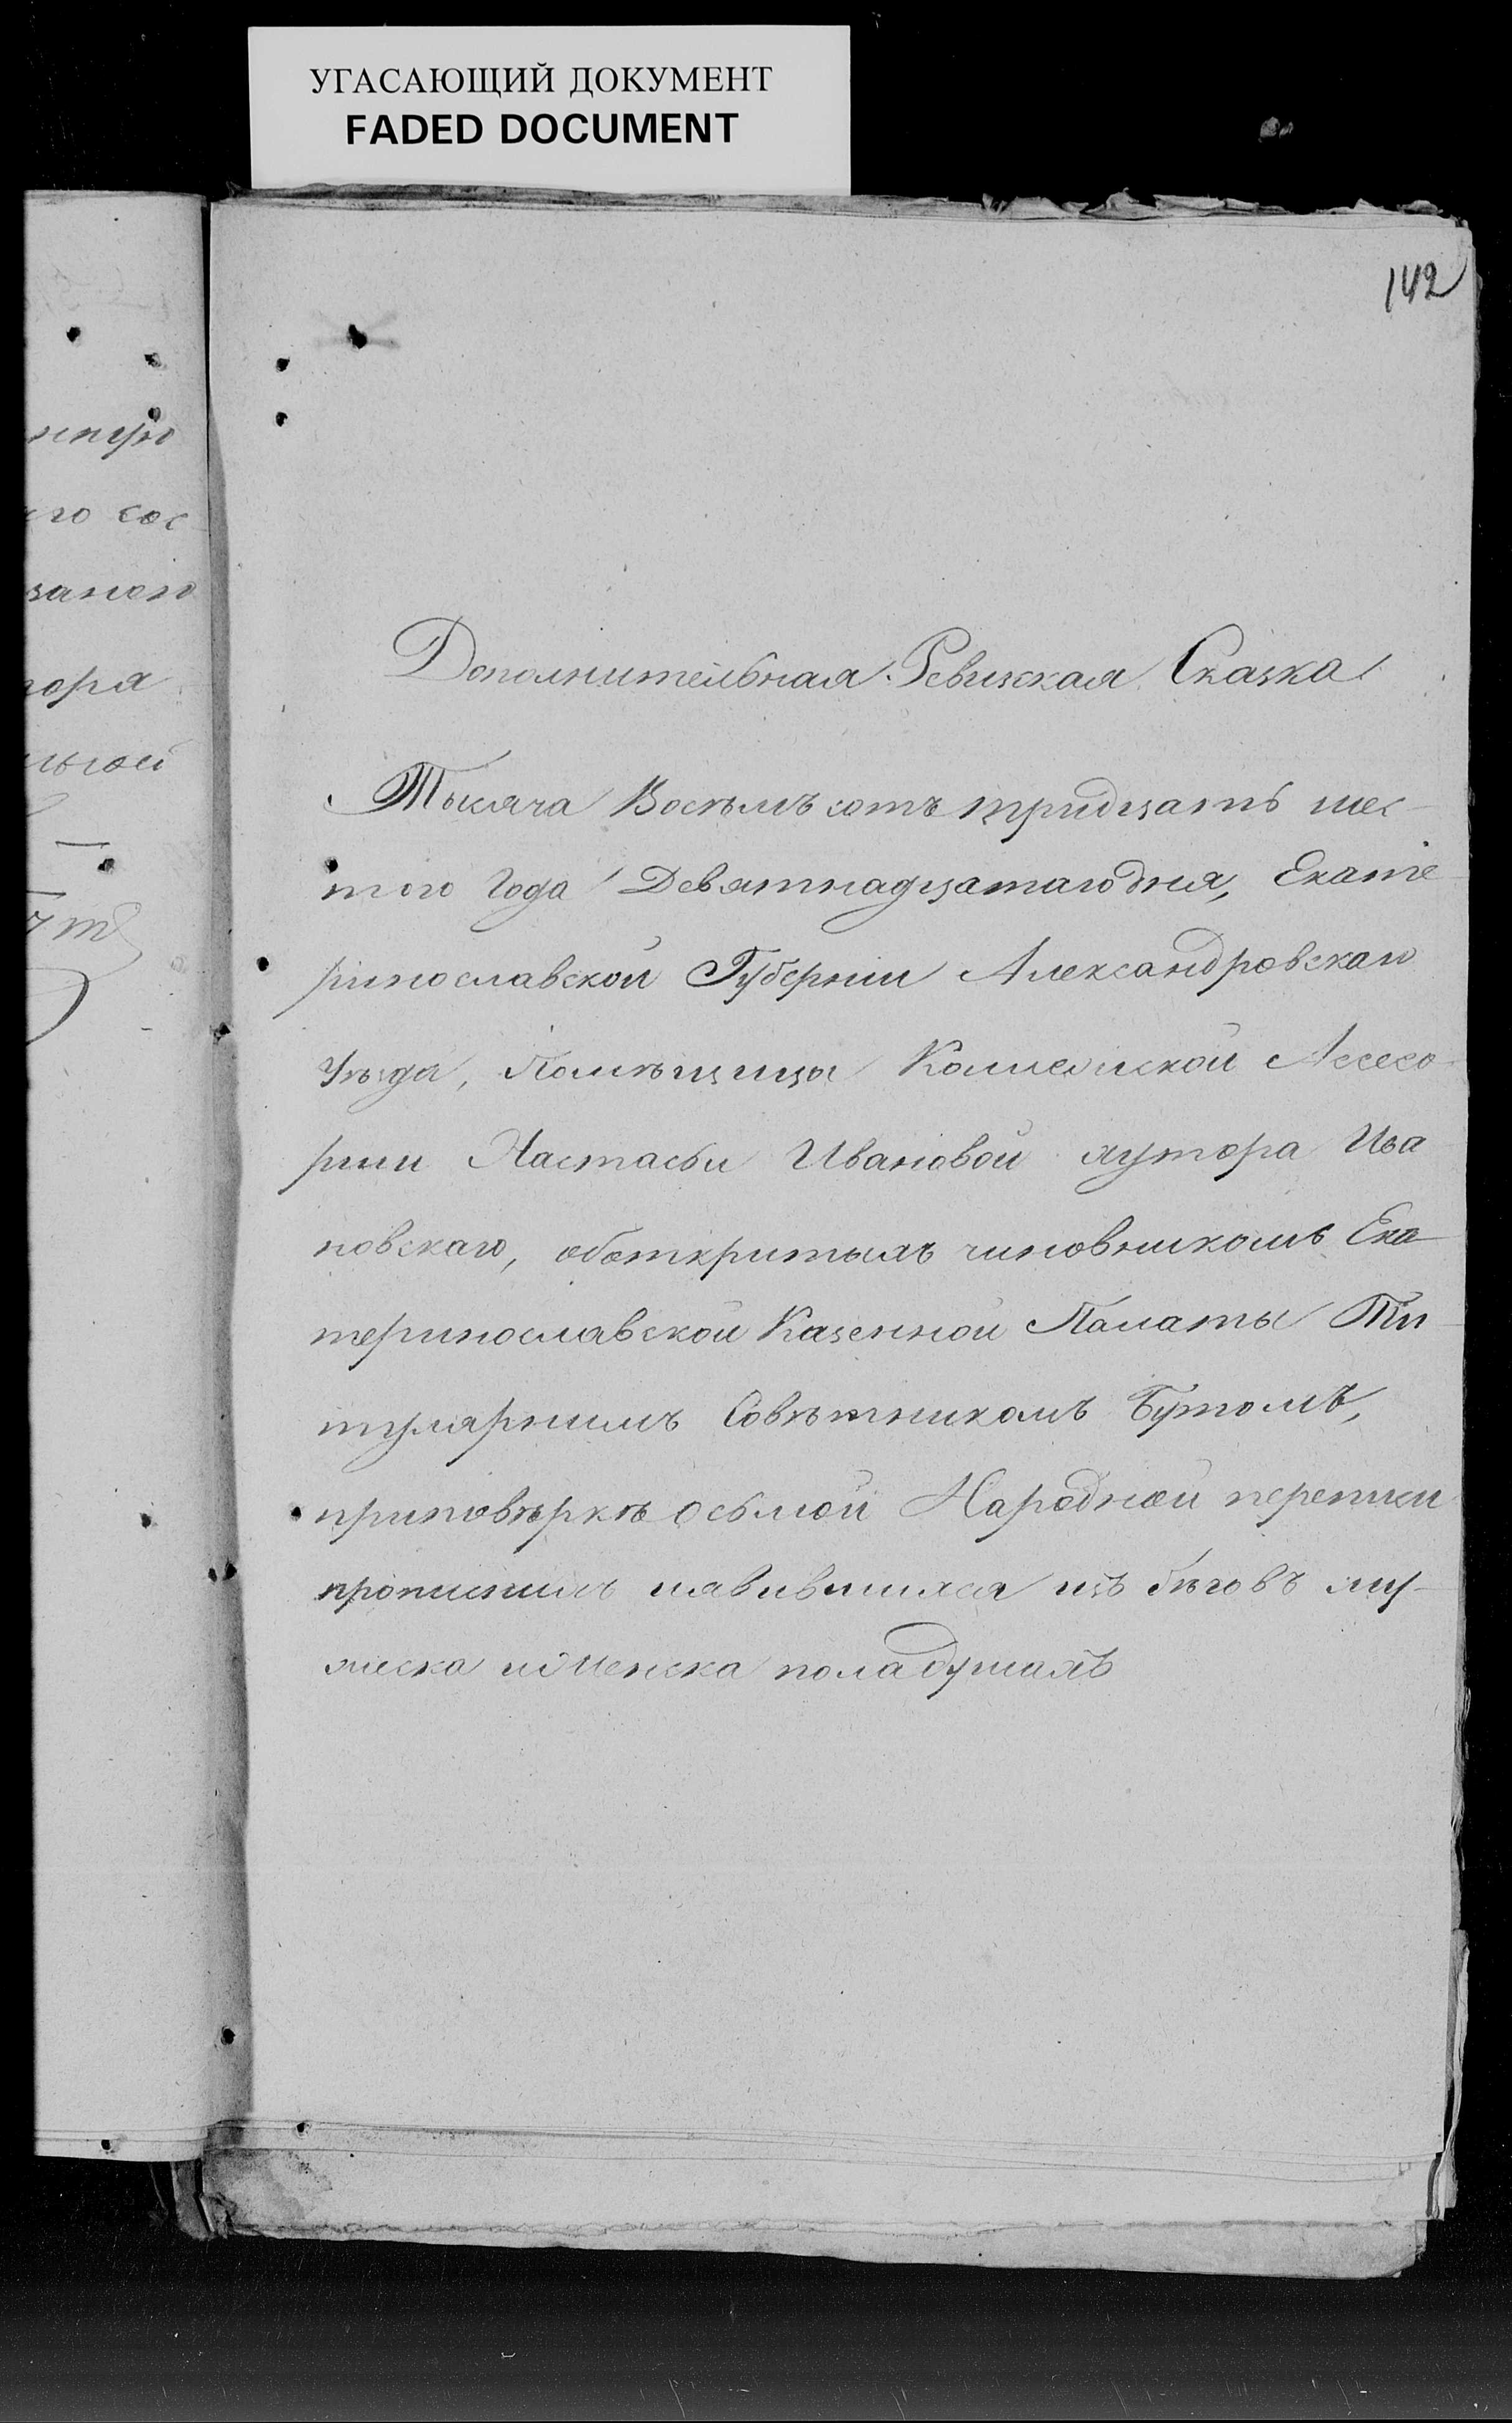 УГАСАЮЩИЙ ДОКУМЕНТ
FADED DOCUMENT
142
Дополнительная Ревизская Сказка
Тысяча Восемъ сотъ тридцать шес-
того года Девятнадцатаго дня, Екате
ринославской Губернии Александровскаго
Уѣзда, Помѣщицы Коллежской Ассесо
рши Настасьи Ивановой хутора Ива
новскаго, оботкритыхъ чиновникомъ Ека
теринославской Казенной Палаты Ти
тулярнимъ Совѣтникомъ Бутомъ,
приповѣркѣ осьмой Народной переписи
прописнихъ иявившихся изъ бѣговъ му-
жеска и женска пола душахъ
го сос
тора